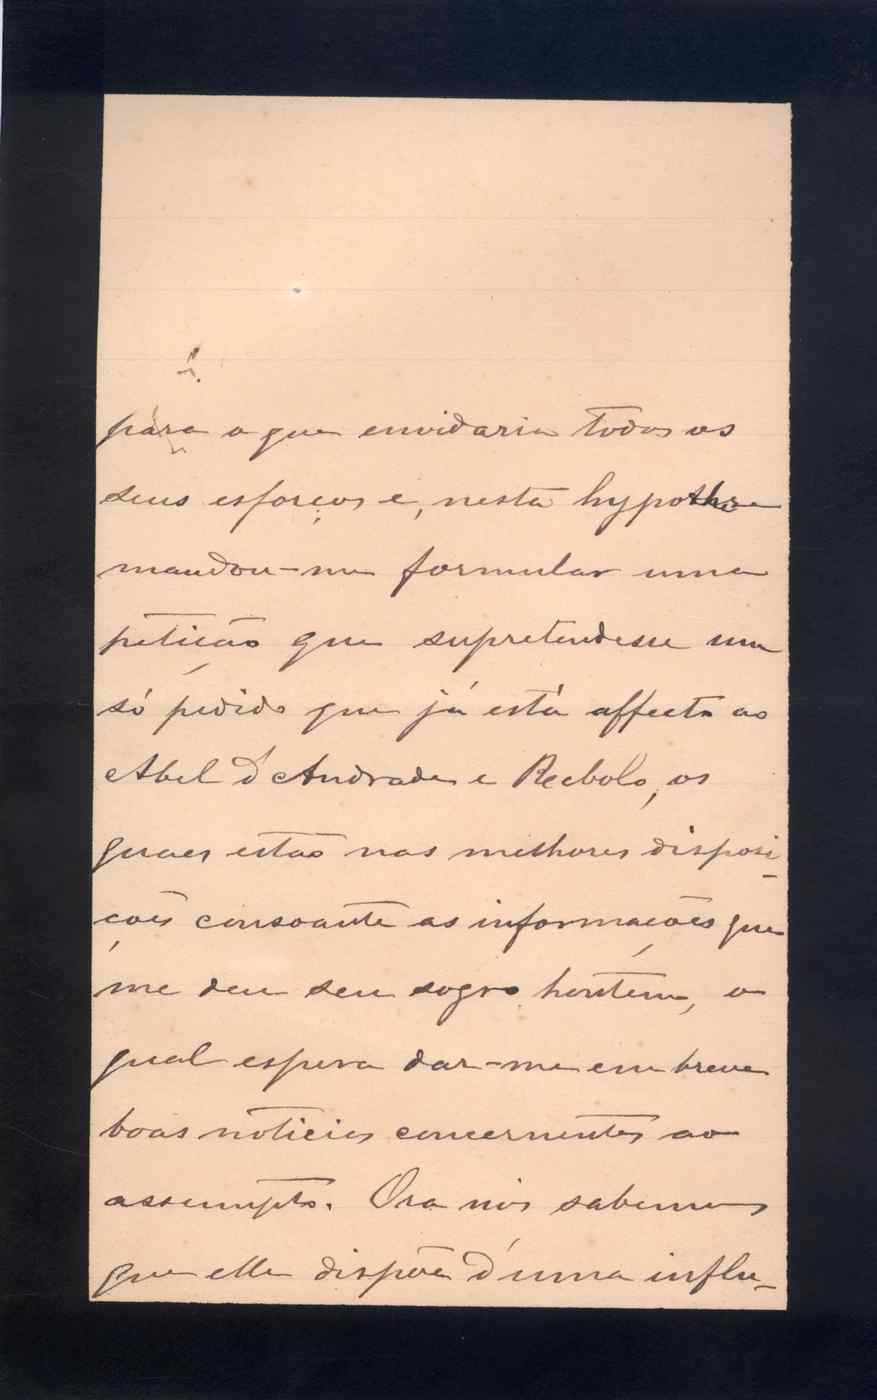 para o que envidaria todos os
seus esforços e, nesta hypothse
mandou-me formular uma
petição que supretendesse um
só pedido que já está affecto ao
Abel d'Andrade e Rebolo, os
quaes estão nas melhores disposi-
ções consoante as informações que
me deu seu sogro hontem, o
qual espera dar-me em breve
boas noticias concernentes ao
assumpto. Ora nós sabemos
que elle dispõe d'uma influ-